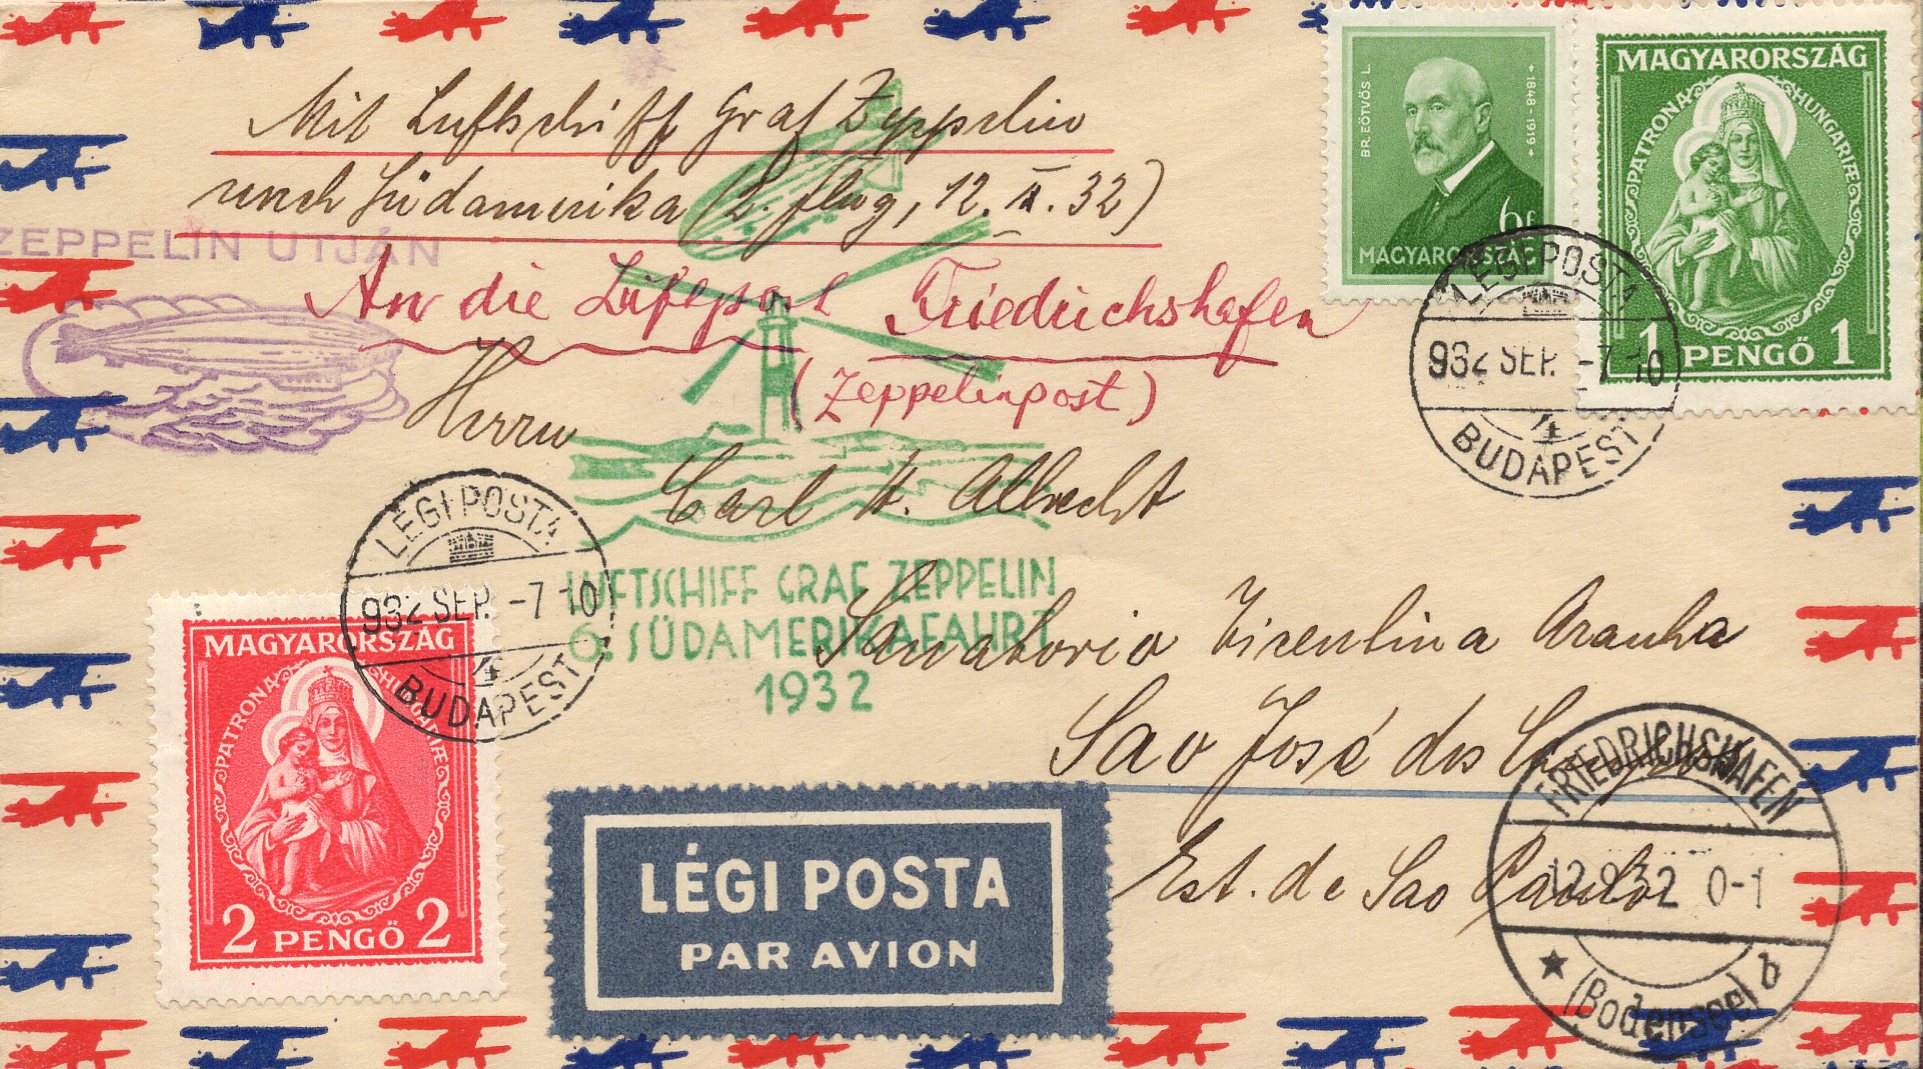 Mit Luftschiff Graf Zeppelin
nach Südamerika (2. flug, 12. IX. 32)
ZEPPELIN UTJÁN
An die Luftpost Friedrichshafen
(Zeppelinpost)
Herrn
Carl H. Albrecht
Sanatorio Vicentina Aranha
Sao José dos Campos
Est. de Sao Paulo
LUFTSCHIFF GRAF ZEPPELIN
6. SÜDAMERIKAFAHRT
1932
BR. EÖTVÖS L.
1848-1919
6f
MAGYARORSZÁG
MAGYARORSZÁG
PATRONA HUNGARIAE
1 PENGŐ 1
LÉGI POSTA
932 SEP. -7 10
4
BUDAPEST
LÉGI POSTA
932 SEP. -7 10
4
BUDAPEST
MAGYARORSZÁG
PATRONA HUNGARIAE
2 PENGŐ 2
LÉGI POSTA
PAR AVION
FRIEDRICHSHAFEN
12.9.32 0-1
(Bodensee) b